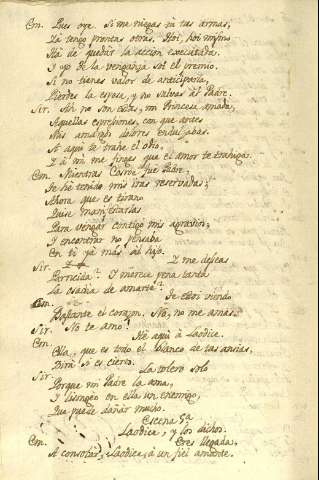 Em. Pues oye. Si me niegas tu tus armas,
Ya tengo prontas otras. Hoi, hoi mismo
Ha de quedar la accion executada.
Y yo de la venganza soi el premio.
Si no tienes valor de anticiparla,
Pierdes la esposa, y no salvas al Padre.
Sir. Ah no son estas, mi Princesa amada,
Aquellas expresiones, con que antes
Mis amargos dolores endulzabas.
A aqui te trahe el odio,
Y a mi me finges que el amor te trahiga.
Em. Mientras Cosroe fue Padre,
Te he tenido mis iras reservadas;
Ahora que es tirano
Quise manifestarlas
Para vengar contigo mis agravios;
Y encontrar no pensaba
En ti ya mas al hijo.
Sir. Y me deseas
Parricida? Y merece pena tanta
La osadia de amarte?
Em. Te estoi viendo
Bastante el corazon. No, no me amas.
Sir. No te amo?
Em. He aqui à Laodice.
Ella, que es todo el blanco de tus ansias,
Dirà si es cierto.
Sir. La tolero solo
Porque mi Padre la ama,
Y lisongeo en ella un enemigo,
Que puede dañar mucho.
Escena 5a
Laodice, y los dichos.
Em. Eres llegada,
A consolar, Laodice, à un fiel amante.